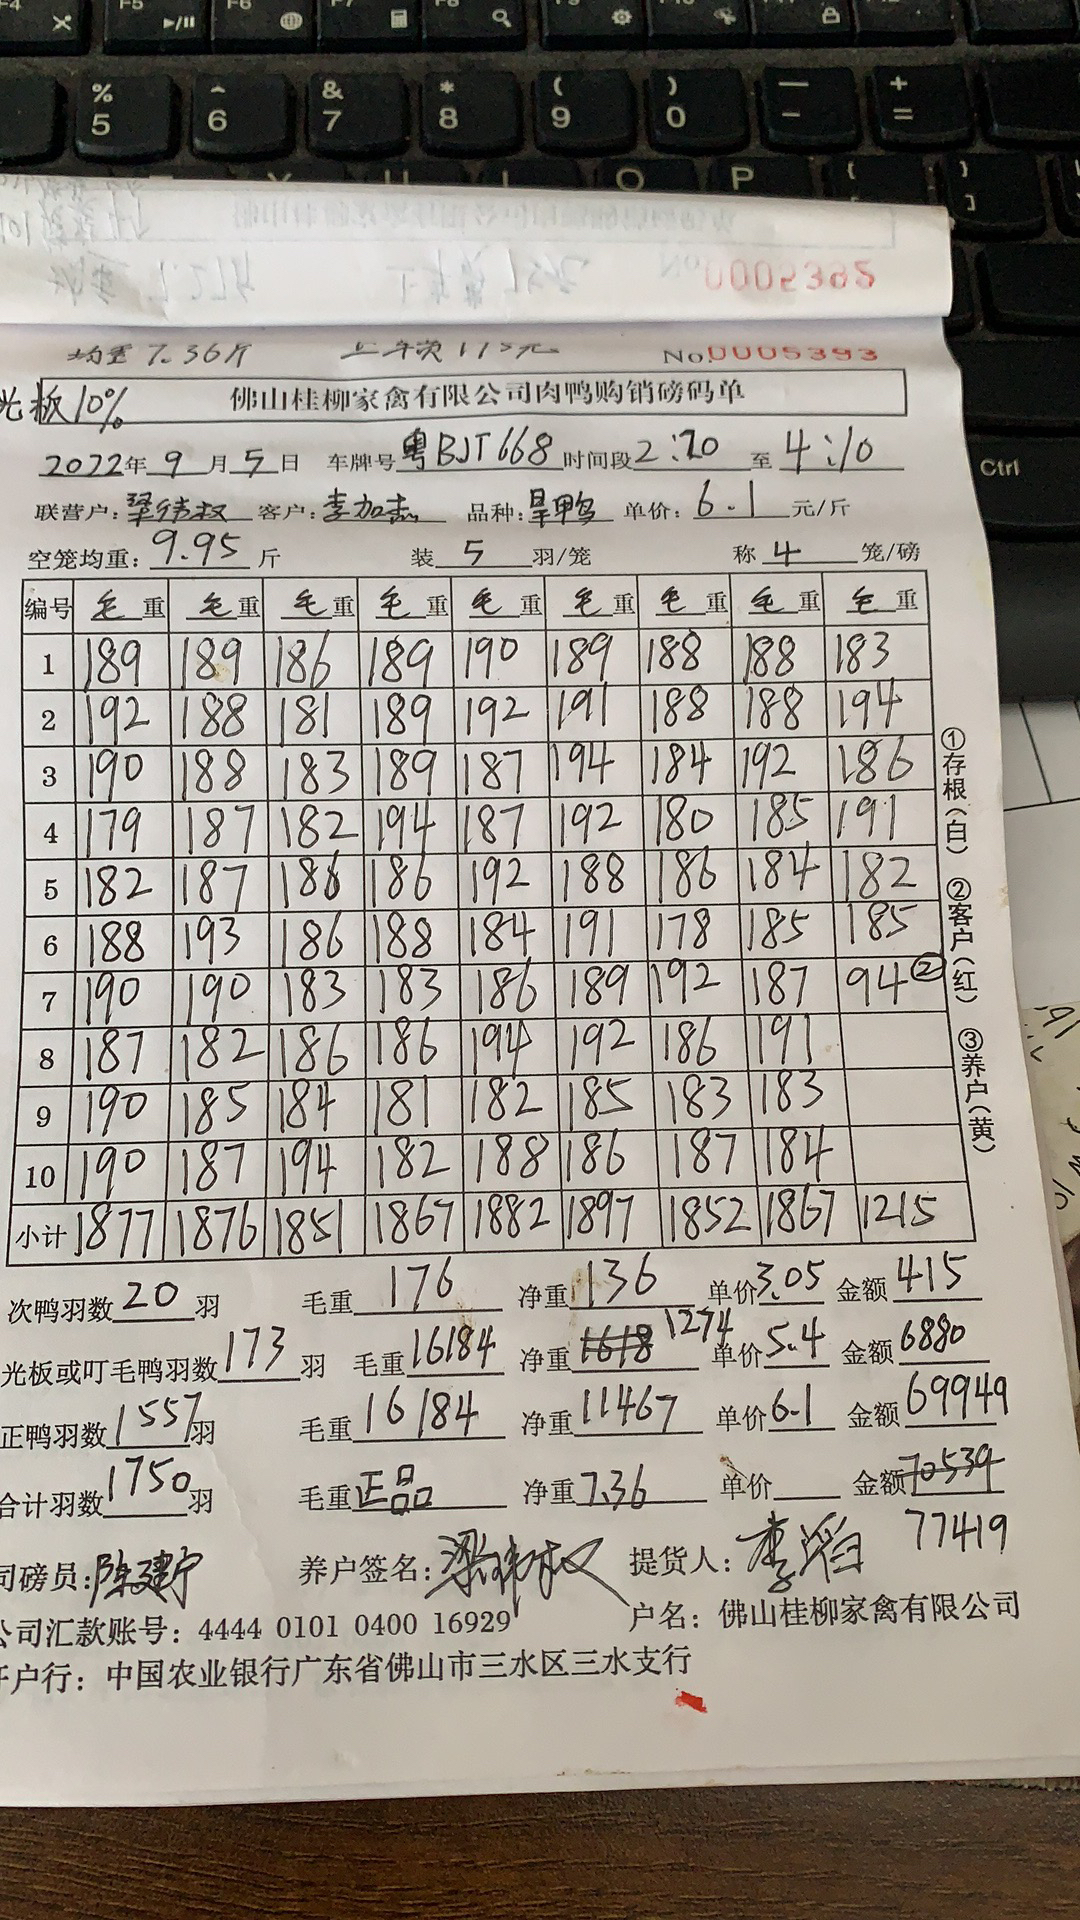 F5 F6 F7 F8 F9
% 5 ^ 6 & 7 * 8 ( 9 ) 0 — - + =
U O P [ ] }
Ctrl
No.0005392
均重 7.36斤 上车费 175元 No.0005393
光板10%
佛山桂柳家禽有限公司肉鸭购销磅码单
2022年 9 月 5 日 车牌号 粤BJT668 时间段 2:20 至 4:10
联营户: 梁伟权 客户: 李加杰 品种: 旱鸭 单价: 6.1 元/斤
空笼均重: 9.95 斤 装 5 羽/笼 称 4 笼/磅
编号 毛重 毛重 毛重 毛重 毛重 毛重 毛重 毛重 毛重
1 189 189 186 189 190 189 188 188 183
2 192 188 181 189 192 191 188 188 194
3 190 188 183 189 187 194 184 192 186
4 179 187 182 194 187 192 180 185 191
5 182 187 186 186 192 188 186 184 182
6 188 193 186 188 184 191 178 185 185
7 190 190 183 183 186 189 192 187 94 ②
8 187 182 186 186 194 192 186 191
9 190 185 184 181 182 185 183 183
10 190 187 194 182 188 186 187 184
小计 1877 1876 1851 1867 1882 1897 1852 1867 1215
①存根(白) ②客户(红) ③养户(黄)
次鸭羽数 20 羽 毛重 176 净重 136 单价 3.05 金额 415
光板或叮毛鸭羽数 173 羽 毛重 16184 净重 1618 1274 单价 5.4 金额 6880
正鸭羽数 1557 羽 毛重 16184 净重 11467 单价 6.1 金额 69949
合计羽数 1750 羽 毛重 正品 净重 7.36 单价 金额 70539
77419
司磅员: 陈建宁 养户签名: 梁伟权 提货人: 李滔
公司汇款账号: 4444 0101 0400 16929 户名: 佛山桂柳家禽有限公司
开户行: 中国农业银行广东省佛山市三水区三水支行